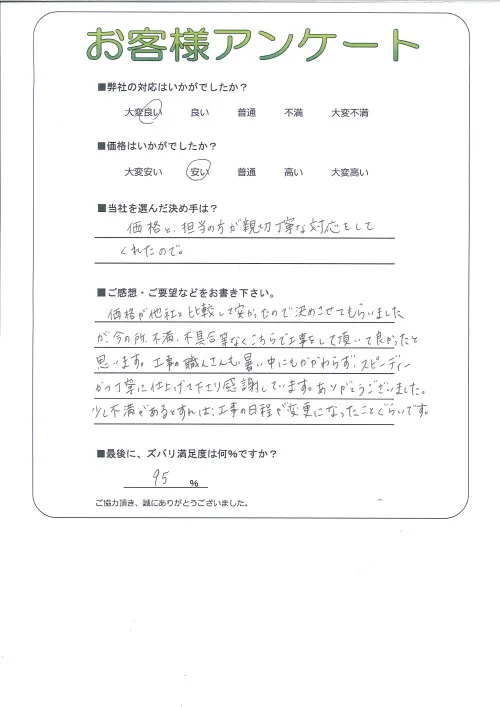 お客様アンケート
■弊社の対応はいかがでしたか？
大変良い 良い 普通 不満 大変不満
■価格はいかがでしたか？
大変安い 安い 普通 高い 大変高い
■当社を選んだ決め手は？
価格と、担当の方が親切丁寧な対応をして
くれたので。
■ご感想・ご要望などをお書き下さい。
価格が他社と比較して安かったので決めさせてもらいました
が、今の所、不満、不具合等なくこちらで工事をして頂いて良かったと
思います。工事の職人さんも暑い中にもかかわらず、スピーディー
かつ丁寧に仕上げて下さり感謝しています。ありがとうございました。
少し不満があるとすれば、工事の日程が変更になったことぐらいです。
■最後に、ズバリ満足度は何％ですか？
95 %
ご協力頂き、誠にありがとうございました。